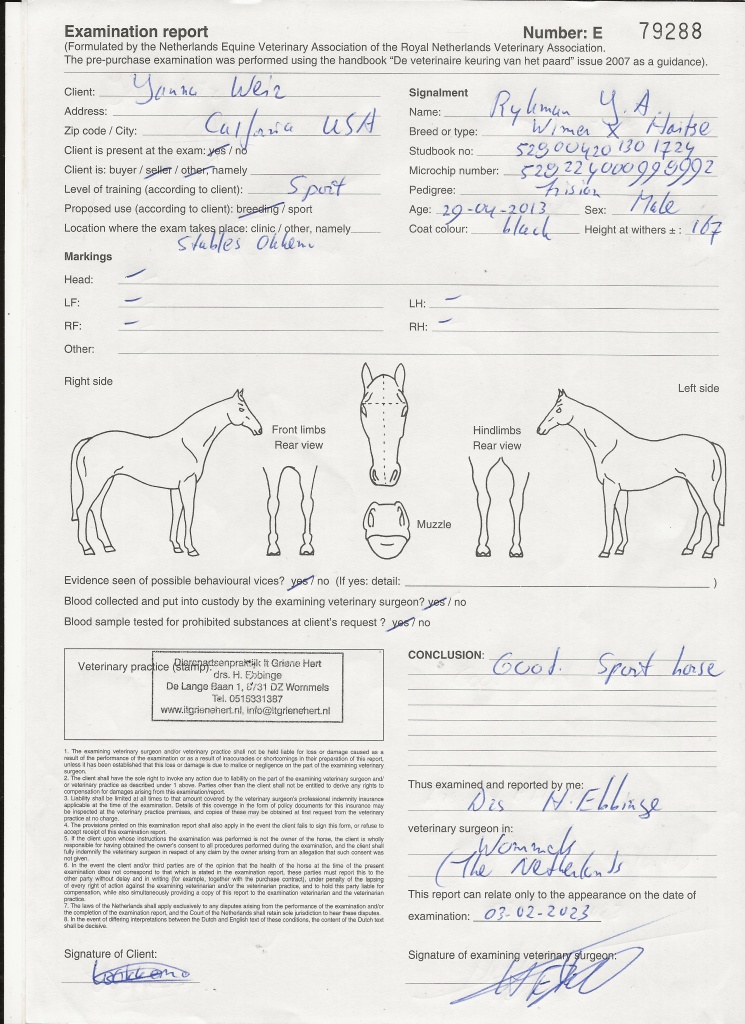 Examination report
Number: E 79288
(Formulated by the Netherlands Equine Veterinary Association of the Royal Netherlands Veterinary Association.
The pre-purchase examination was performed using the handbook "De veterinaire keuring van het paard" issue 2007 as a guidance).
Client: Weir
Address:
Zip code / City: USA
Client is present at the exam: yes / no
Client is: buyer / seller / other, namely
Level of training (according to client): Sport
Proposed use (according to client): breeding / sport
Location where the exam takes place: clinic / other, namely
Stables
Signalment
Name: Y.A.
Breed or type: X
Studbook no: 529004201301724
Microchip number:
Pedigree:
Age: 29-04-2013 Sex: Male
Coat colour: black Height at withers ± : 167
Markings
Head: –
LF: –
LH: –
RF: –
RH: –
Other:
Right side
Left side
Front limbs
Rear view
Hindlimbs
Rear view
Muzzle
Evidence seen of possible behavioural vices? yes / no (If yes: detail: )
Blood collected and put into custody by the examining veterinary surgeon? yes / no
Blood sample tested for prohibited substances at client's request ? yes / no
Veterinary practice (stamp):
Dierenartsenpraktijk It Griene Hert
drs. H. Ebbinge
De Lange Baan 1, 8731 DZ Wommels
Tel. 0515331387
www.itgrienehert.nl, info@itgrienehert.nl
1. The examining veterinary surgeon and/or veterinary practice shall not be held liable for loss or damage caused as a
result of the performance of the examination or as a result of inaccuracies or shortcomings in their preparation of this report,
unless it has been established that this loss or damage is due to malice or negligence on the part of the examining veterinary
surgeon.
2. The client shall have the sole right to invoke any action due to liability on the part of the examining veterinary surgeon and/
or veterinary practice as described under 1 above. Parties other than the client shall not be entitled to derive any rights to
compensation for damages arising from this examination/report.
3. Liability shall be limited at all times to that amount covered by the veterinary surgeon's professional indemnity insurance
applicable at the time of the examination. Details of this coverage in the form of policy documents for this insurance may
be inspected at the veterinary practice premises, and copies of these may be obtained at first request from the veterinary
practice at no charge.
4. The provisions printed on this examination report shall also apply in the event the client fails to sign this form, or refuse to
accept receipt of this examination report.
5. If the client upon whose instructions the examination was performed is not the owner of the horse, the client is wholly
responsible for having obtained the owner's consent to all procedures performed during the examination, and the client shall
fully indemnify the veterinary surgeon in respect of any claim by the owner arising from an allegation that such consent was
not given.
6. In the event the client and/or third parties are of the opinion that the health of the horse at the time of the present
examination does not correspond to that which is stated in the examination report, these parties must report this to the
other party without delay and in writing (for example, together with the purchase contract), under penalty of the lapsing
of every right of action against the examining veterinarian and/or the veterinarian practice, and to hold the party liable for
compensation, while also simultaneously providing a copy of this report to the examination veterinarian and the veterinarian
practice.
7. The laws of the Netherlands shall apply exclusively to any disputes arising from the performance of the examination and/or
the completion of the examination report, and the Court of the Netherlands shall retain sole jurisdiction to hear these disputes.
8. In the event of differing interpretations between the Dutch and English text of these conditions, the content of the Dutch text
shall be decisive.
Signature of Client:
CONCLUSION: Good. Sport horse
Thus examined and reported by me:
Drs H. Ebbinge
veterinary surgeon in:
Wommels
(The Netherlands
This report can relate only to the appearance on the date of
examination: 03-02-2023
Signature of examining veterinary surgeon: